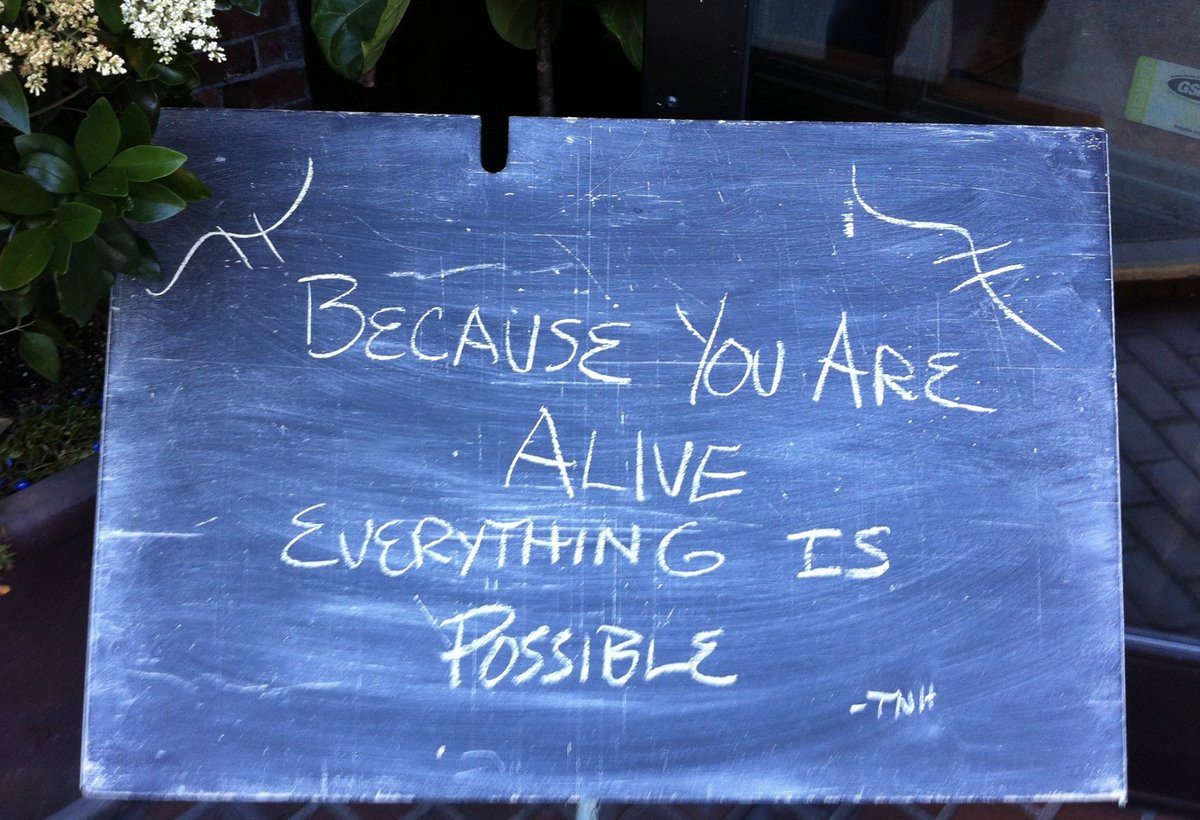 Because You Are
Alive
Everything is
Possible
-TNH